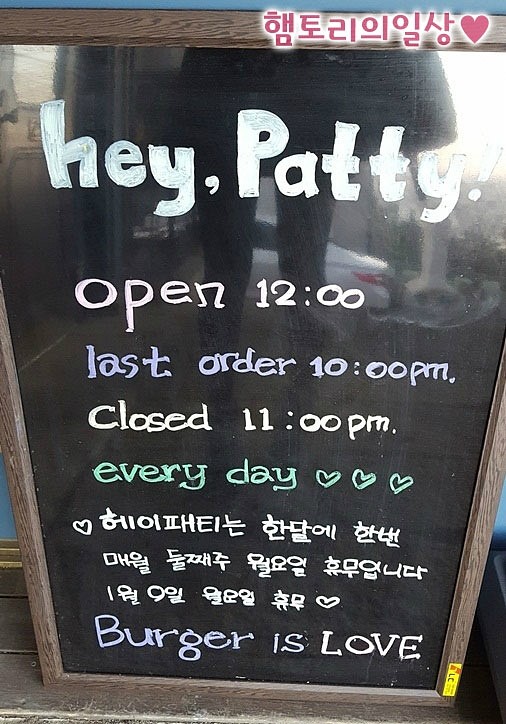 햄토리의일상♥
hey, Patty!
open 12:00
last order 10:00pm.
Closed 11:00pm.
every day ♡ ♡ ♡
♡ 헤이패티는 한달에 한번
매월 둘째주 월요일 휴무입니다
1월 9일 월요일 휴무 ♡
Burger is LOVE
LC